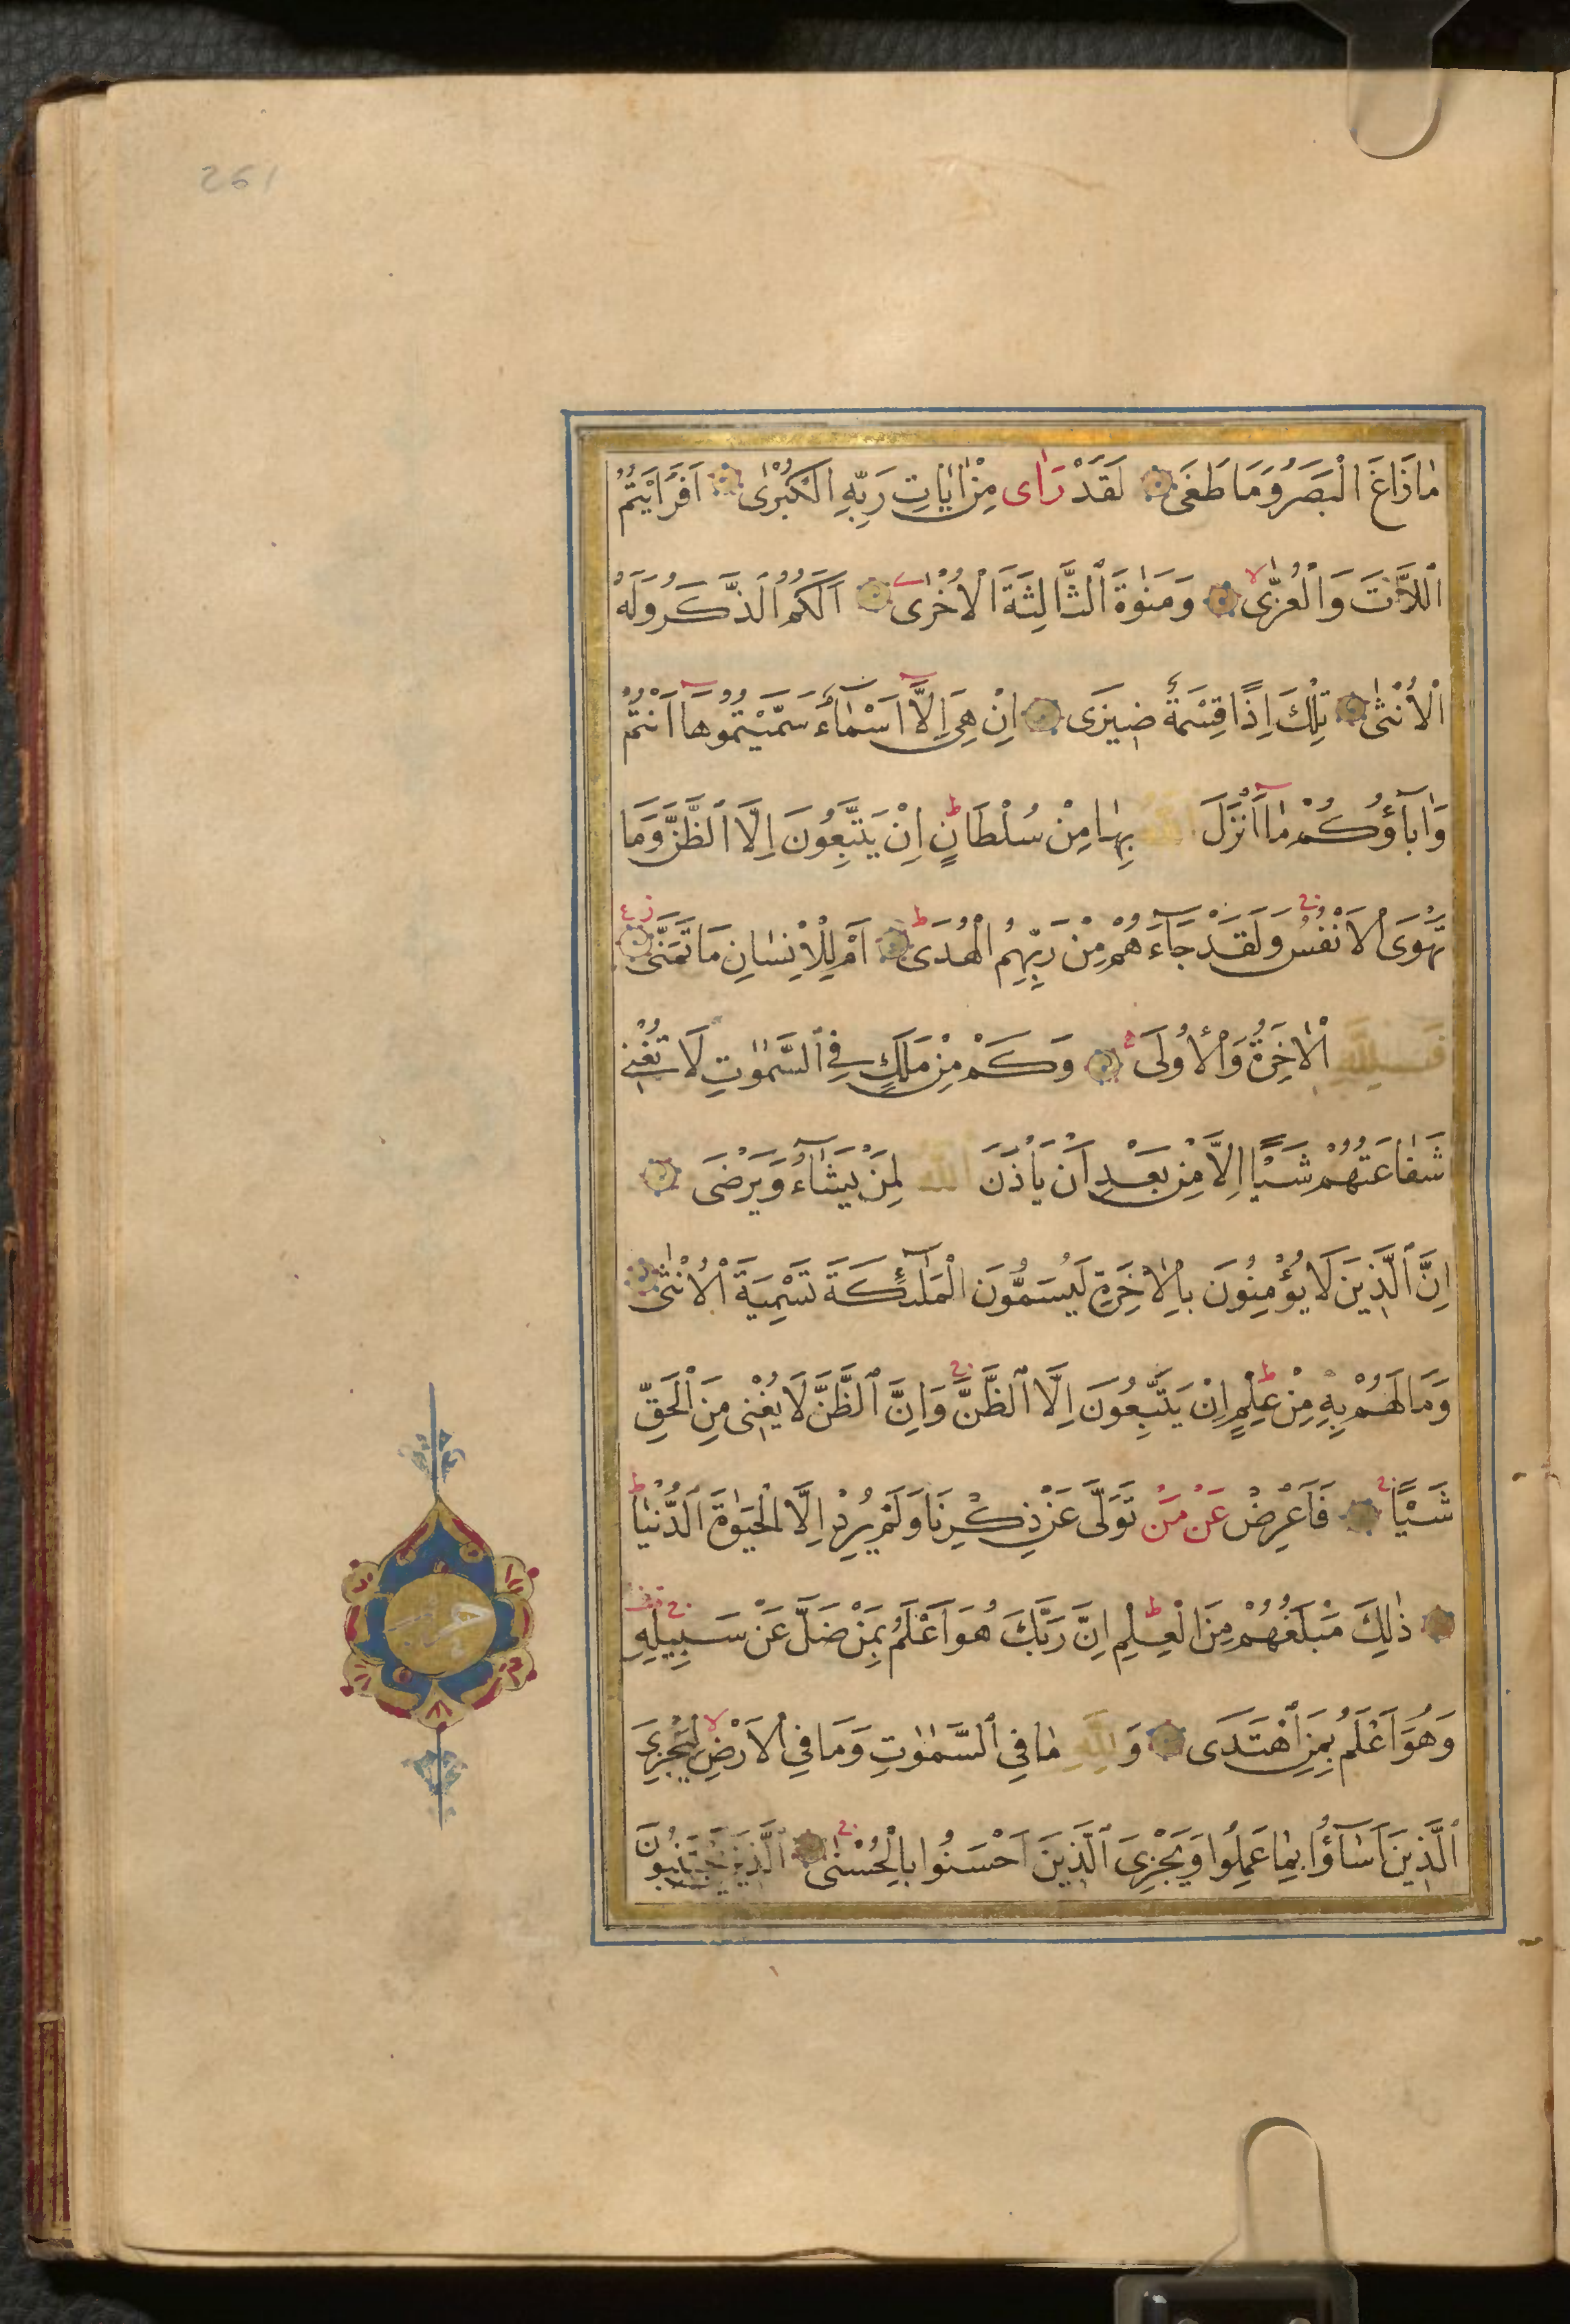 261
مٰا زَاغَ الْبَصَرُ وَمَا طَغَى لَقَدْ رَاٰى مِنْ اٰيٰاتِ رَبِّهِ الْكُبْرٰى اَفَرَاَيْتُمُ
ٱللَّاتَ وَالْعُزّٰى وَمَنٰوةَ ٱلثَّالِثَةَ الْاُخْرٰى اَلَكُمُ ٱلذَّكَرُ وَلَهُ
الْاُنْثٰى تِلْكَ اِذًا قِسْمَةٌ ضِيزَى اِنْ هِىَ اِلَّا اَسْمٰآءٌ سَمَّيْتُمُوهٰا اَنْتُمْ
وَاٰبآؤُكُمْ مٰا اَنْزَلَ اللّٰهُ بِهٰا مِنْ سُلْطَانٍ اِنْ يَتَّبِعُونَ اِلَّا ٱلظَّنَّ وَمَا
تَهْوَى الْاَنْفُسُ وَلَقَدْ جَآءَهُمْ مِنْ رَبِّهِمُ الْهُدَى اَمْ لِلْاِنْسٰانِ مَا تَمَنّٰى
فَلِلّٰهِ الْاٰخِرَةُ وَالْاُولَى وَكَمْ مِنْ مَلَكٍ فِى ٱلسَّمٰوٰتِ لَا تُغْنِى
شَفٰاعَتُهُمْ شَيْـًٔا اِلَّا مِنْ بَعْدِ اَنْ يَاْذَنَ اللّٰهُ لِمَنْ يَشٰآءُ وَيَرْضَى
اِنَّ ٱلَّذِينَ لَا يُؤْمِنُونَ بِالْاٰخِرَةِ لَيُسَمُّونَ الْمَلٰٓئِكَةَ تَسْمِيَةَ الْاُنْثٰى
وَمَا لَهُمْ بِهِ مِنْ عِلْمٍ اِنْ يَتَّبِعُونَ اِلَّا ٱلظَّنَّ وَاِنَّ ٱلظَّنَّ لَا يُغْنِى مِنَ الْحَقِّ
شَيْـًٔا فَاَعْرِضْ عَنْ مَنْ تَوَلَّى عَنْ ذِكْرِنَا وَلَمْ يُرِدْ اِلَّا الْحَيٰوةَ ٱلدُّنْيٰا
ذٰلِكَ مَبْلَغُهُمْ مِنَ الْعِلْمِ اِنَّ رَبَّكَ هُوَ اَعْلَمُ بِمَنْ ضَلَّ عَنْ سَبِيلِهِ
وَهُوَ اَعْلَمُ بِمَنِ ٱهْتَدَى وَلِلّٰهِ مٰا فِى ٱلسَّمٰوٰتِ وَمَا فِى الْاَرْضِ لِيَجْزِىَ
ٱلَّذِينَ اَسٰآؤُا بِمٰا عَمِلُوا وَيَجْزِىَ ٱلَّذِينَ اَحْسَنُوا بِالْحُسْنٰى ٱلَّذِينَ يَجْتَنِبُونَ